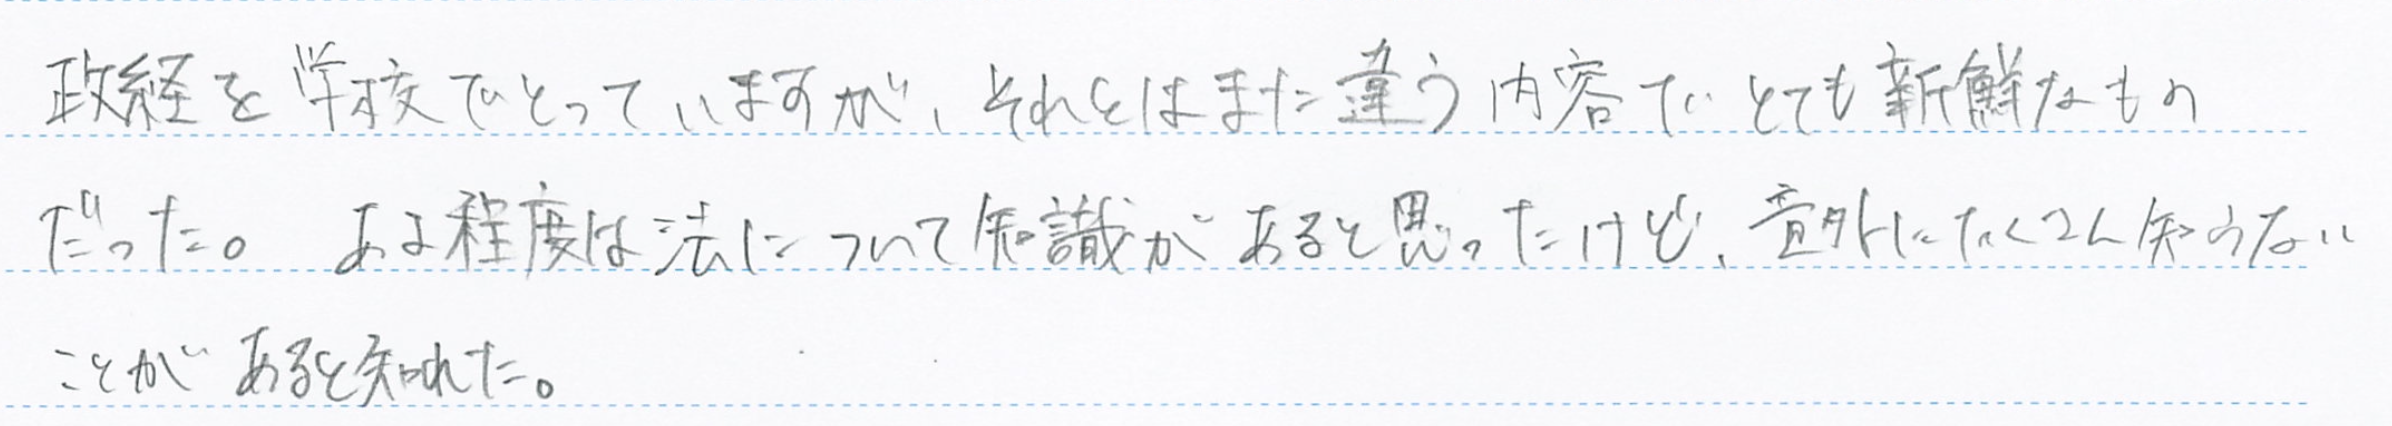 政経を学校でとっていますが、それとはまた違う内容でとても新鮮なもの
だった。ある程度は法について知識があると思ったけど、意外にたくさん知らない
ことがあると知れた。